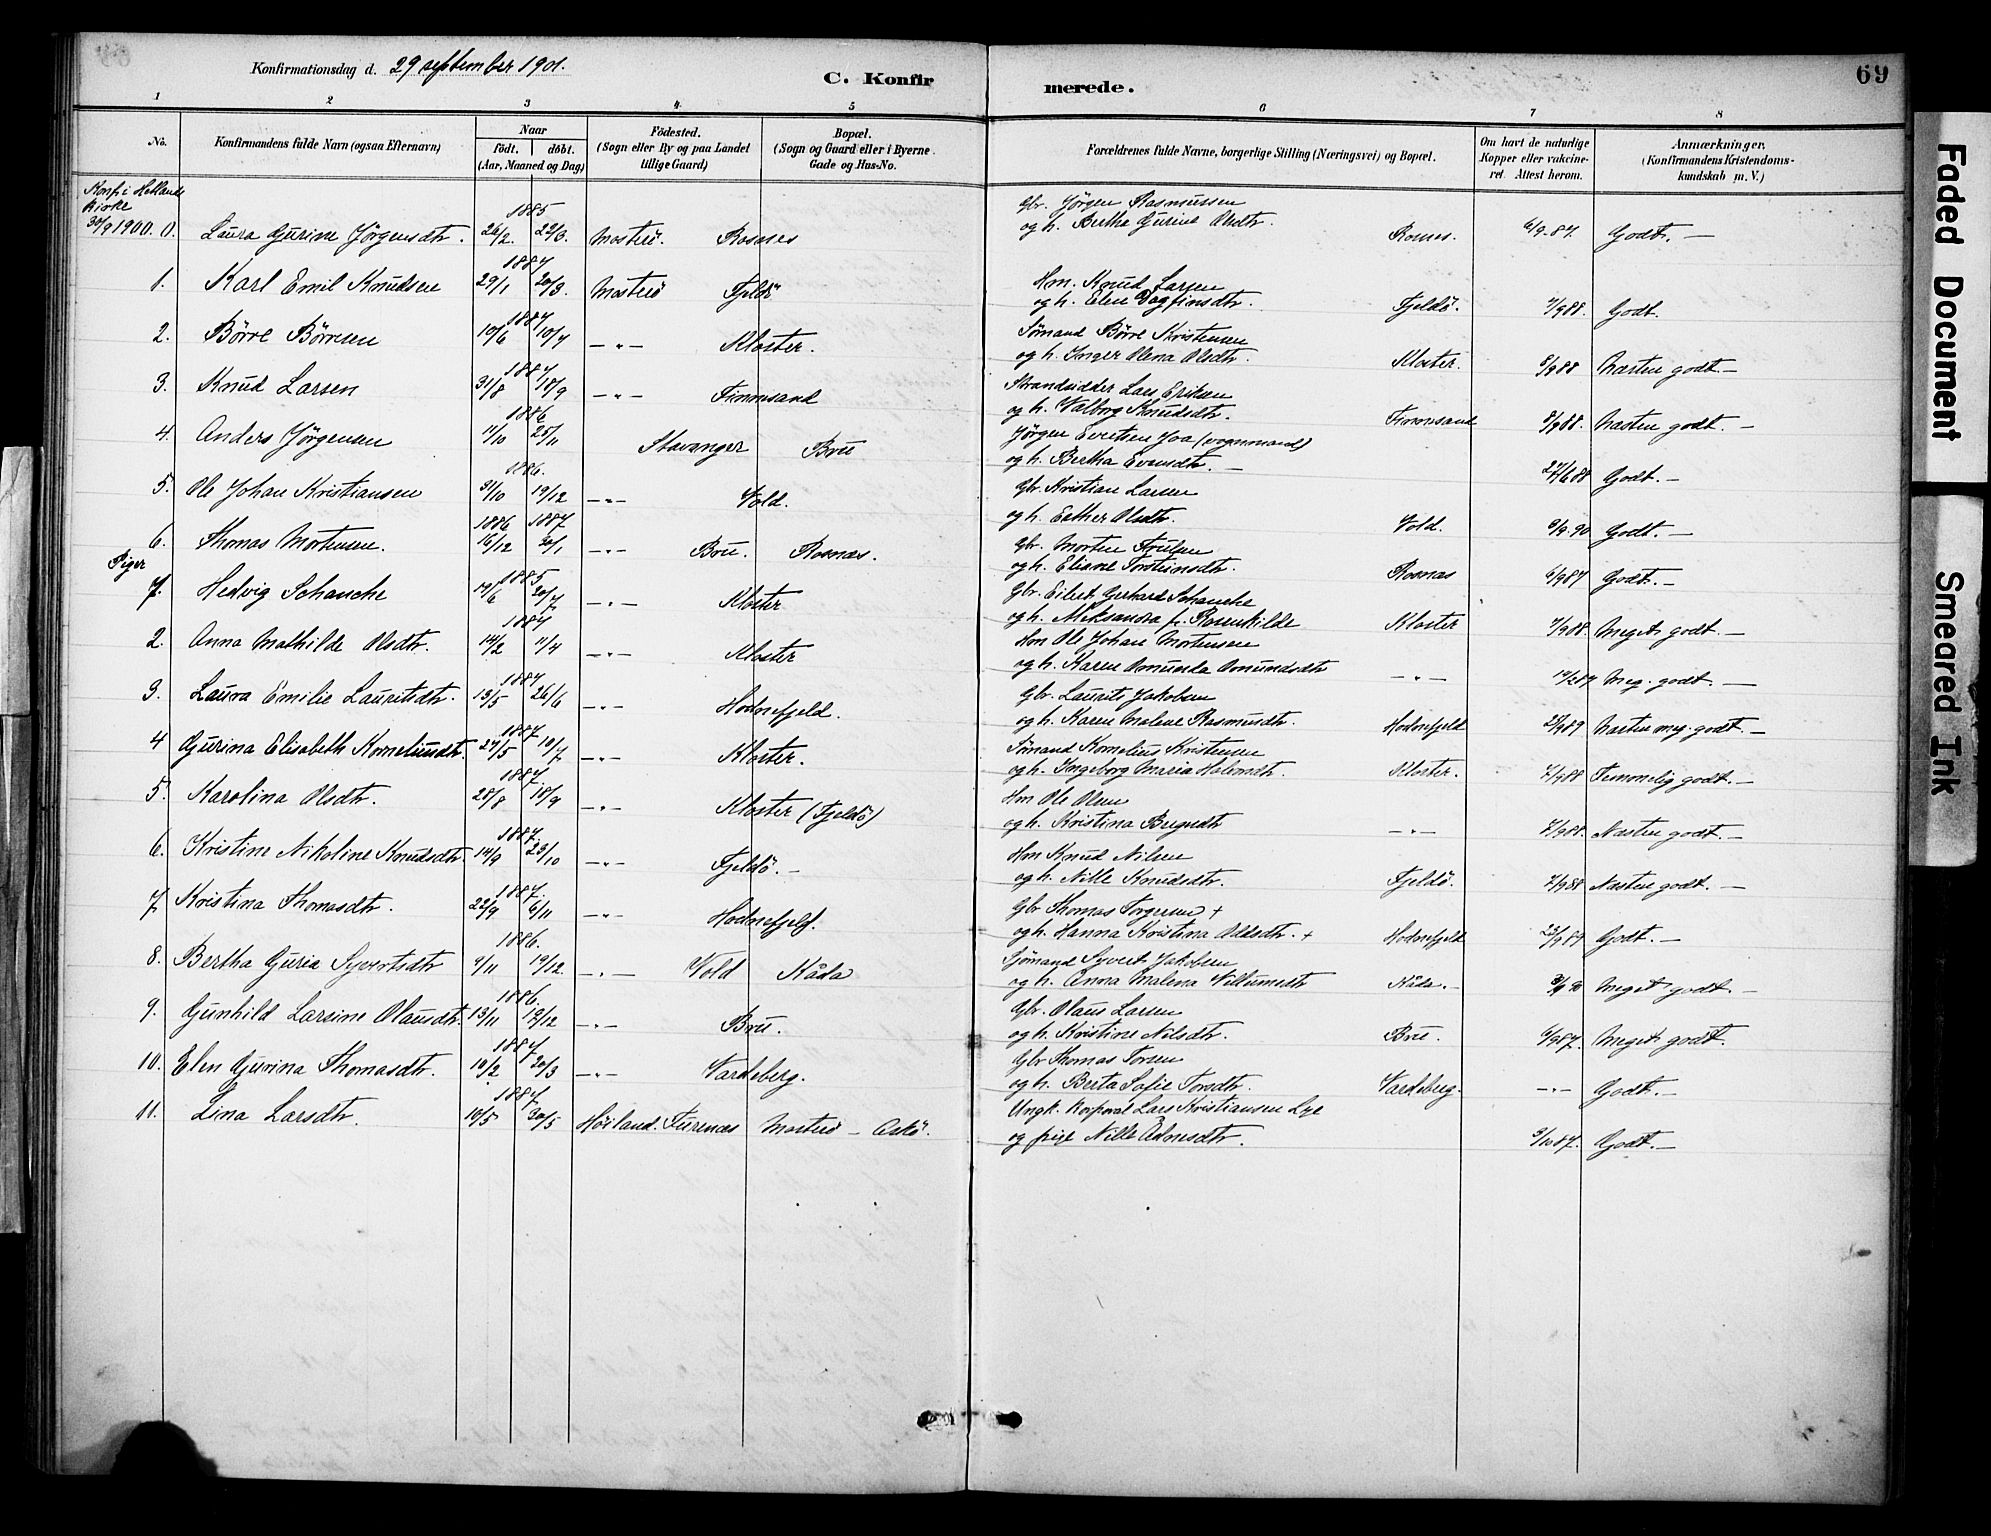 Konfirmationsdag d. 29 september 1901.
C. Konfirmerede.
69
1 2 3 4 5 6 7 8
No. Konfirmandens fulde Navn (ogsaa Efternavn) Naar født. døbt. (Aar, Maaned og Dag) Fødested. (Sogn eller By og paa Landet tillige Gaard) Bopæl. (Sogn og Gaard eller i Byerne Gade og Hus-No. Forældrenes fulde Navne, borgerlige Stilling (Næringsvei) og Bopæl. Om havt de naturlige Kopper eller vakcineret. Attest herom. Anmærkninger. (Konfirmandens Kristendomskundskab m. V.)
Konf. i Hetlands
Kirke
30/9 1900. 0. Laura Gurine Jörgensdtr. 1885 26/2. 22/3. Mosterö. Rosnes
Gbr. Jörgen Rasmussen
og h. Bertha Gurine Olsdtr. Rosnes. 6/9-87. Godt. —
1. Karl Emil Knudsen 1887 29/1 20/3. Mosterö Fjeldö
Hm. Knud Larsen
og h. Elen Dagfinsdtr. Fjeldö. 7/9 88. Godt.
2. Börre Börresen 1887 10/6 10/7 —"— Kloster.
Sömand Börre Kristensen
og h. Inger Olena Olsdtr. Kloster. 8/9 88 Næsten godt. —
3. Knud Larsen 1887 31/8 18/9 —"— Finnesand
Strandsidder Lars Eriksen
og h. Valborg Knudsdtr. Finnesand 8/9 88. Næsten godt. —
4. Anders Jörgensen 1886 11/10 25/11 Stavanger Bru
Jörgen Evertsen Joa (vognmand)
og h. Bertha Evensdtr. — 27/6 88 Godt. —
5. Ole Johan Kristiansen 1886. 31/10 19/12 —"— Vold.
Gbr. Kristian Larsen
og h. Esther Olsdtr. Vold. 9/9-90 Godt. —
6. Thomas Mortensen. 1886 16/12 1887 30/1 —"— Bru. Rosnæs.
Gbr. Morten
og h. Eliane Torsteinsdtr. Rosnæs 6/9 87 Godt. —
Piger
1. Hedvig Schanche 1885 19/6 20/7 —"— Kloster
Gbr. Eilert Gerhard Schanche
og h. Aleksandra f. Rosenkilde Kloster 7/9 88. Meget godt. —
2. Anna Mathilde Olsdtr. 1887 14/2 11/4 —"— Kloster
Hm Ole Johan Mortensen
og h. Karen Amunda Amundsdtr —"— Meg. godt. —
3. Laura Emilie Lauritsdtr. 1887 13/5 26/6 —"— Hodnefjeld.
Gbr. Laurits Jakobsen
og h. Karen Malene Rasmusdtr. Hodnefjeld Næsten meg. godt. —
4 Gurina Elisabeth Korneliusdtr. 1887. 27/5 10/7 —"— Kloster.
Sömand Kornelius Kristensen
og h. Ingeborg Maria Kloster. 7/9 88 Temmelig godt. —
5. Karolina Olsdtr. 1887. 28/8 18/9 —"— Kloster (Fjeldö)
Hm Ole Olsen
og h. Kristina —"— 7/9 88. Næsten godt. —
6. Kristine Nikoline Knudsdtr. 1887. 14/9 23/10 —"— Fjeldö. —
Hm Knud Nilsen
og h. Nille Knudsdtr. Fjeldö. 7/9 88 Næsten godt. —
7 Kristina Thomasdtr. 1887. 22/9 6/11 —"— Hodnefjeld.
Gbr Thomas Torgersen +
og h. Hanna Kristina Oldsdtr. + Hodnefjeld Godt. —
8. Bertha Guria Syvertsdtr 1886. 9/11 19/12. —"— Vold Kåda
Sjömand Syvert Jakobsen
og h. Anna Malena Villumsdtr Kåda. — Meget godt. —
9. Gunhild Larsine Olausdtr. 1886. 13/11 12/12 —"— Bru.
Gbr. Olaus Larsen
og h. Kristine Nilsdtr. Bru. 6/9 87. Meget godt.
10. Elen Gurina Thomasdtr. 1887 10/2 20/3 —"— Vardeberg.
Gbr Thomas Torsen
og h. Berta Sofie Torsdtr. Vardeberg. —"— Godt. —
11. Lina Larsdtr. 1887 10/5 30/5 Höiland. Furenæs Mosterö — Askö.
Ungk. Korporal Lars Kristiansen Lye
og pige Nille Adnesdtr. 3/10 87. Godt. —
Faded Document
Smeared Ink